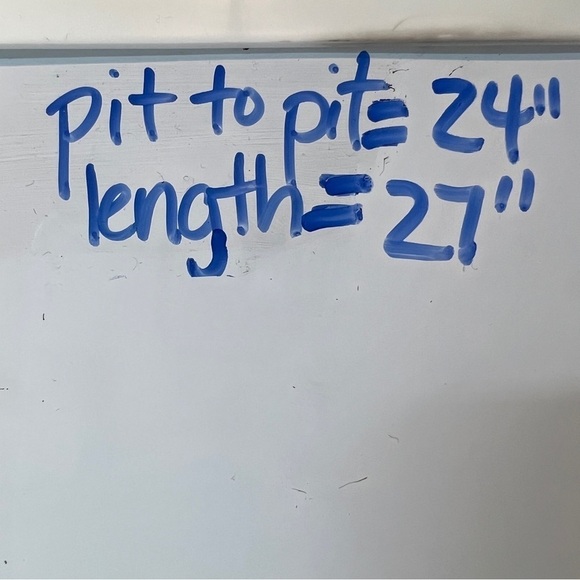 pit to pit = 24"
length = 27"